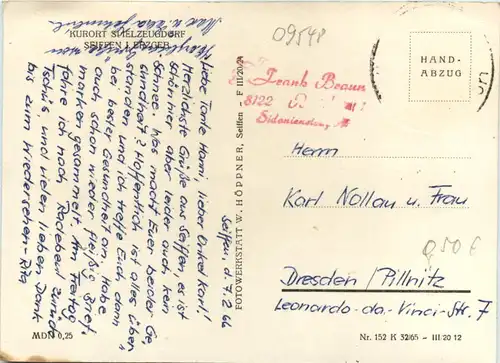 KURORT SPIELZEUGDORF
SEIFFEN I. ERZGEB.
Seiffen, d. 7.2.66
Liebe Tante Hanni, lieber Onkel Karl!
Herzlichste Grüße aus Seiffen, es ist
schön hier aber leider auch kein
Schnee. Was macht Euer beider Ge-
sundheit? Hoffentlich ist alles über-
standen und ich treffe Euch dann
bei bester Gesundheit an. Habe
auch schon wieder fleißig Brief-
marken gesammelt. Am Freitag
fahre ich nach Radebeul zurück.
Tschüß, und vielen lieben Dank
bis zum Wiedersehen Rita
MDN 0,25
FOTOWERKSTATT W. HÖPPNER, Seiffen – F III/20/24
09548
Frank Braun
8122
Sidonienstr.
HAND-
ABZUG
Herrn
Karl Nollau u. Frau
Q50 €
Dresden / Pillnitz
Leonardo-da-Vinci-Str. 7
Nr. 152 K 32/65 – III 20 12